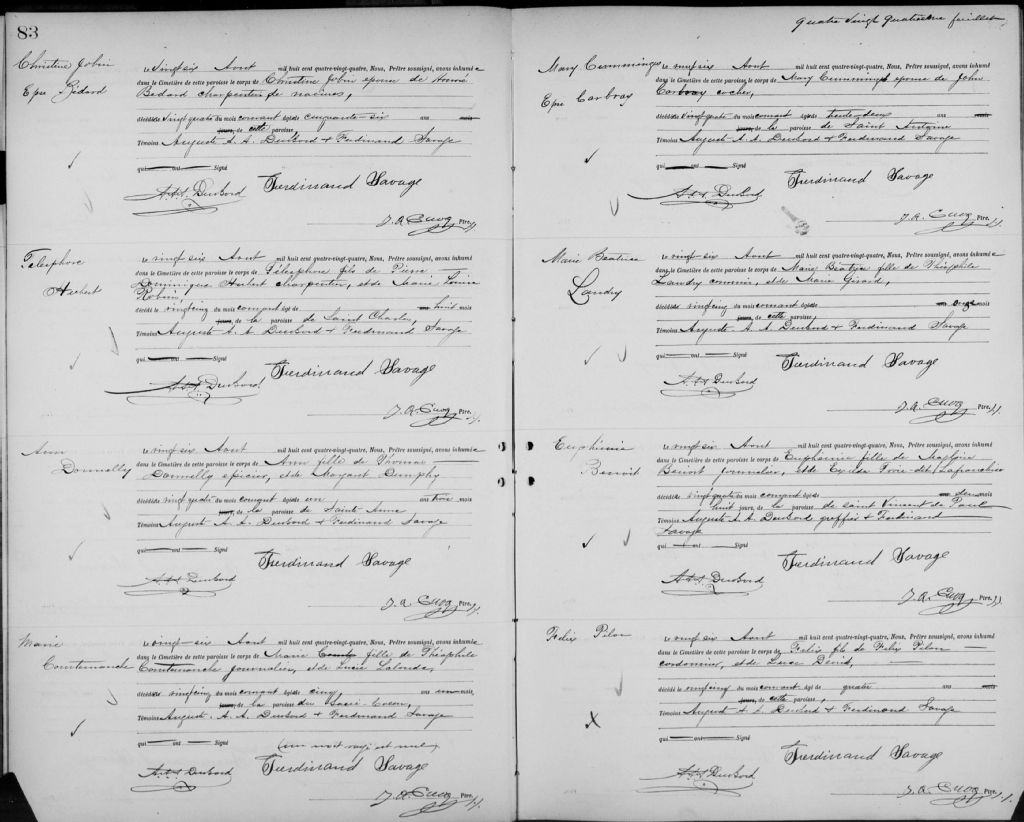 83
Christine Jobin
Epse Bédard
Le vingt six Aout mil huit cent quatre-vingt-quatre, Nous, Prêtre soussigné, avons inhumé e
dans le Cimetière de cette paroisse le corps de Christine Jobin epouse de
Bedard charpentier de navires,
décédée vingt quatre du mois courant âgée de cinquante-six ans mois
jours, de cette paroisse,
Témoins Auguste A. A. DeuBord & Ferdinand Savage
qui ont Signé
Ferdinand Savage
A.A.A. DeuBord
J. A. Cuoq Ptre.
Telesphore
Hebert
Le vingt six Aout mil huit cent quatre-vingt-quatre, Nous, Prêtre soussigné, avons inhumé
dans le Cimetière de cette paroisse le corps de Télesphore fils de Pierre
Dominique Hebert charpentier, et de Marie Louise
Robins,
décédé le vingt cinq du mois courant âgé de huit mois
jours, de la paroisse de Saint Charles,
Témoins Auguste A. A. DeuBord & Ferdinand Savage
qui ont Signé
Ferdinand Savage
A.A.A. DeuBord
J. A. Cuoq Ptre.
Ann
Donnelly
Le vingt six Aout mil huit cent quatre-vingt-quatre, Nous, Prêtre soussigné, avons inhumé
dans le Cimetière de cette paroisse le corps de Ann fille de Thomas
Donnelly epicier, et de Margaret Dunphy
décédée le vingt quatre du mois courant âgée de un ans trois mois
jours, de la paroisse de Sainte Anne
Témoins Auguste A. A. DeuBord & Ferdinand Savage
qui ont Signé
Ferdinand Savage
A.A.A. DeuBord
J. A. Cuoq Ptre.
Marie
Courtemanche
Le vingt-six Aout mil huit cent quatre-vingt-quatre, Nous, Prêtre soussigné, avons inhumé
dans le Cimetière de cette paroisse le corps de Marie fille de Théophile
Courtemanche journalier, et de Lucie Lalonde,
décédée vingt cinq du mois courant âgée de cinq ans mois,
jours, de la paroisse du Sacré-Coeur,
Témoins Auguste A. A. DeuBord & Ferdinand Savage
qui ont Signé
(un mot rayé est nul)
Ferdinand Savage
A.A.A. DeuBord
J. A. Cuoq Ptre.
quatre vingt quatrième feuillet
Mary Cummings
Epse Carbray
Le vingt six Aout mil huit cent quatre-vingt-quatre, Nous, Prêtre soussigné, avons inhumé
dans le Cimetière de cette paroisse le corps de Mary Cummings epouse de John
Carbray cocher,
décédée vingt quatre du mois courant âgée de trente deux ans mois
jours, de la paroisse de Saint Antoine
Témoins Auguste A. A. DeuBord & Ferdinand Savage
qui ont Signé
Ferdinand Savage
A.A.A. DeuBord
J. A. Cuoq Ptre.
Marie Beatrice
Landry
Le vingt six Aout mil huit cent quatre-vingt-quatre, Nous, Prêtre soussigné, avons inhumé
dans le Cimetière de cette paroisse le corps de Marie Béatrice fille de Théophile
Landry commis, et de Marie Girard,
décédée vingt cinq du mois courant âgée de ans onze mois
jours, de cette paroisse,
Témoins Auguste A. A. DeuBord & Ferdinand Savage
qui ont Signé
Ferdinand Savage
A.A.A. DeuBord
J. A. Cuoq Ptre.
Euphémie
Benoit
Le vingt six Aout mil huit cent quatre-vingt-quatre, Nous, Prêtre soussigné, avons inhumé
dans le Cimetière de cette paroisse le corps de Euphémie fille de
Benoit journalier, et de dit Lafranchise
décédée vingt quatre du mois courant âgée de ans deux mois
huit jours, de la paroisse de saint Vincent de Paul
Témoins Auguste A. A. DeuBord greffier & Ferdinand
Savage
qui ont Signé
Ferdinand Savage
A.A.A. DeuBord
J. A. Cuoq Ptre.
Felix Pilon
Le vingt six Aout mil huit cent quatre-vingt-quatre, Nous, Prêtre soussigné, avons inhumé
dans le Cimetière de cette paroisse le corps de Felix fils de Felix Pilon
cordonnier, et de Luce Denis,
décédé le vingt cinq du mois courant âgé de quatre ans mois
jours, de cette paroisse,
Témoins Auguste A. A. DeuBord & Ferdinand Savage
qui ont Signé
Ferdinand Savage
A.A.A. DeuBord
J. A. Cuoq Ptre.